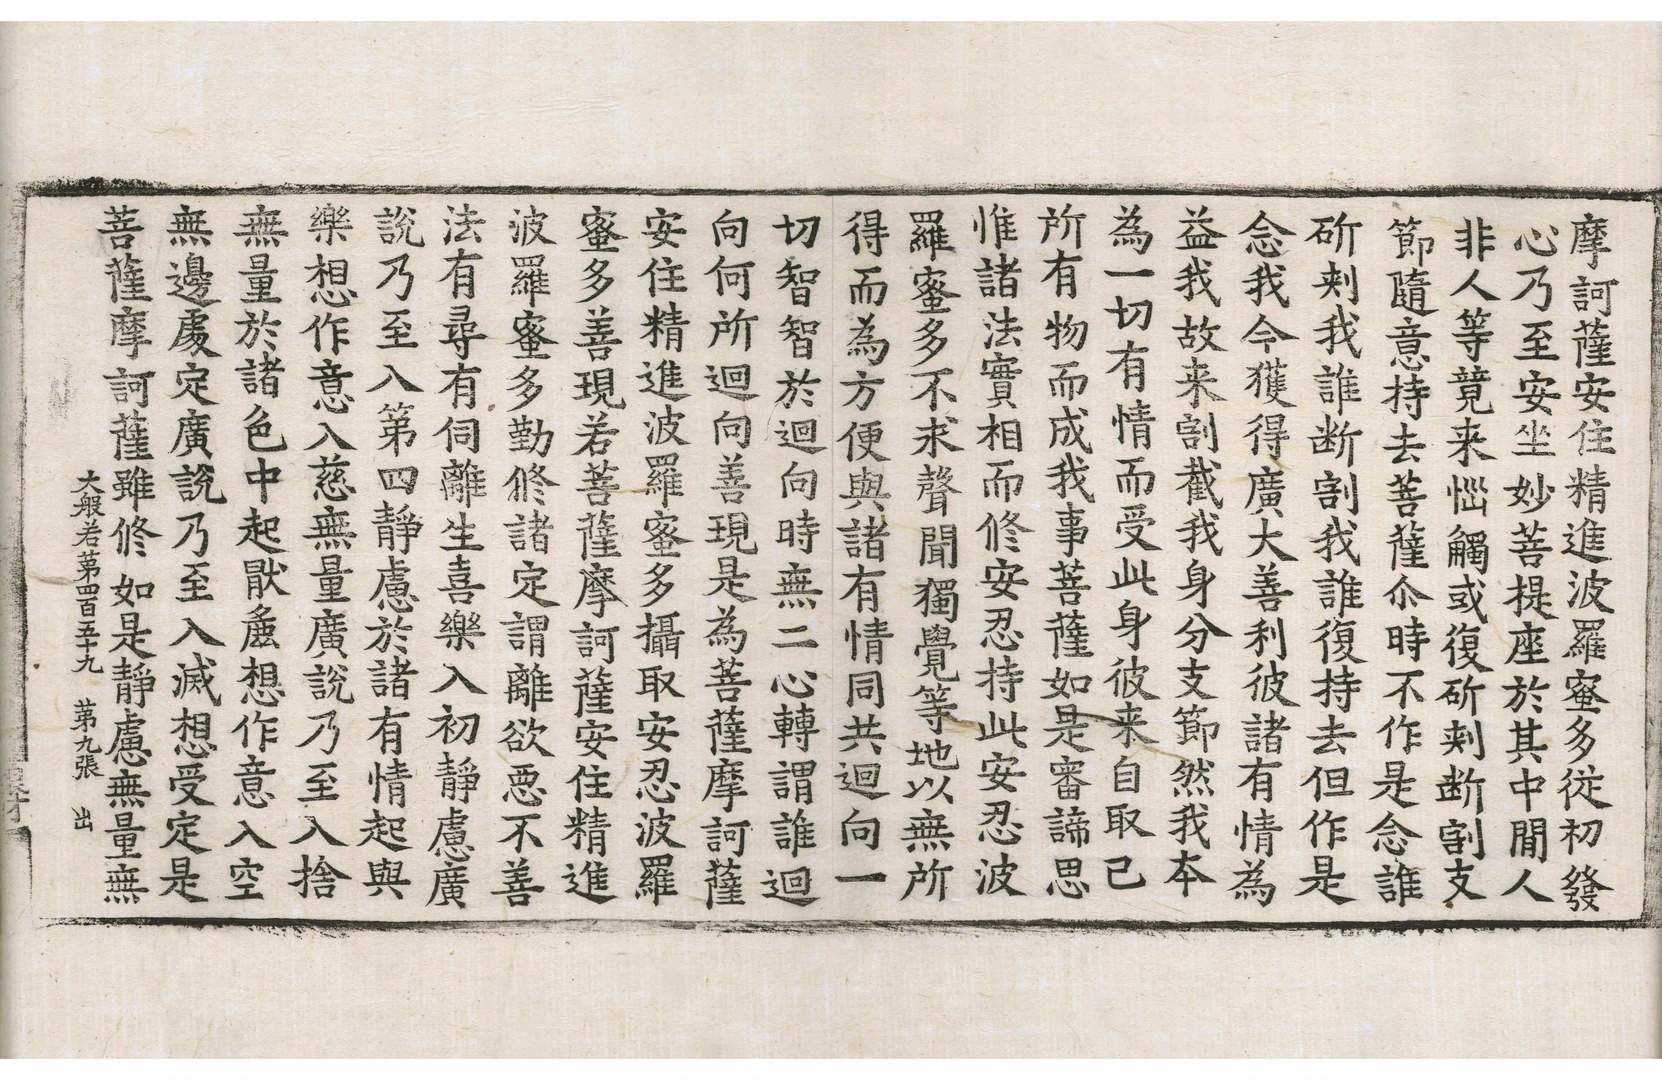 摩訶薩安住精進波羅蜜多從初發
心乃至安坐妙菩提座於其中閒人
非人等競来惱觸或復斫刾断割支
節隨意持去菩薩尒時不作是念誰
斫刾我誰断割我誰復持去但作是
念我今獲得廣大善利彼諸有情為
益我故来割截我身分支節然我夲
為一切有情而受此身彼来自取己
所有物而成我事菩薩如是審諦思
惟諸法實相而修安忍持此安忍波
羅蜜多不求聲聞獨覺等地以無所
得而為方便與諸有情同共迴向一
切智智於迴向時無二心轉謂誰迴
向何所迴向善現是為菩薩摩訶薩
安住精進波羅蜜多攝取安忍波羅
蜜多善現若菩薩摩訶薩安住精進
波羅蜜多勤修諸定謂離欲惡不善
法有尋有伺離生喜樂入初靜慮廣
說乃至入第四靜慮於諸有情起與
樂想作意入慈無量廣說乃至入捨
無量於諸色中起猒麁想作意入空
無邊處定廣說乃至入滅想受定是
菩薩摩訶薩雖修如是靜慮無量無
大般若第四百五十九　第九張　出